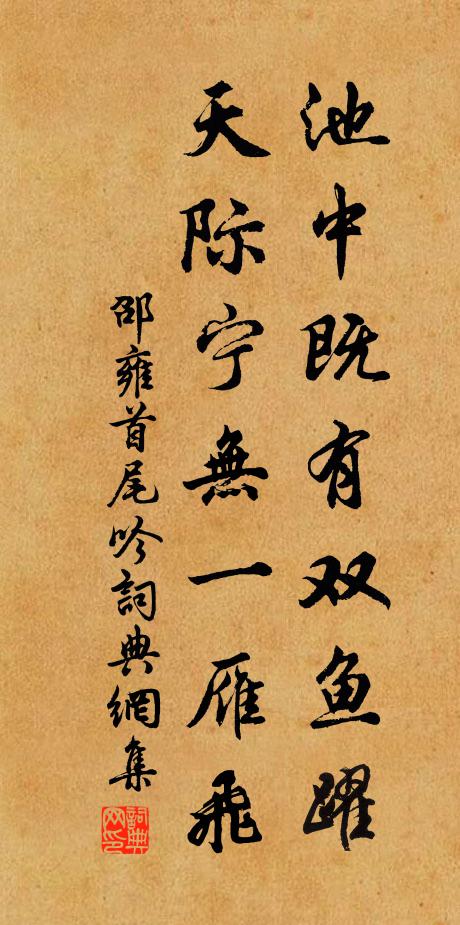 池中既有双鱼躍
天际宁無一雁飛
邵雍首尾吟詞典網集
詞典网印